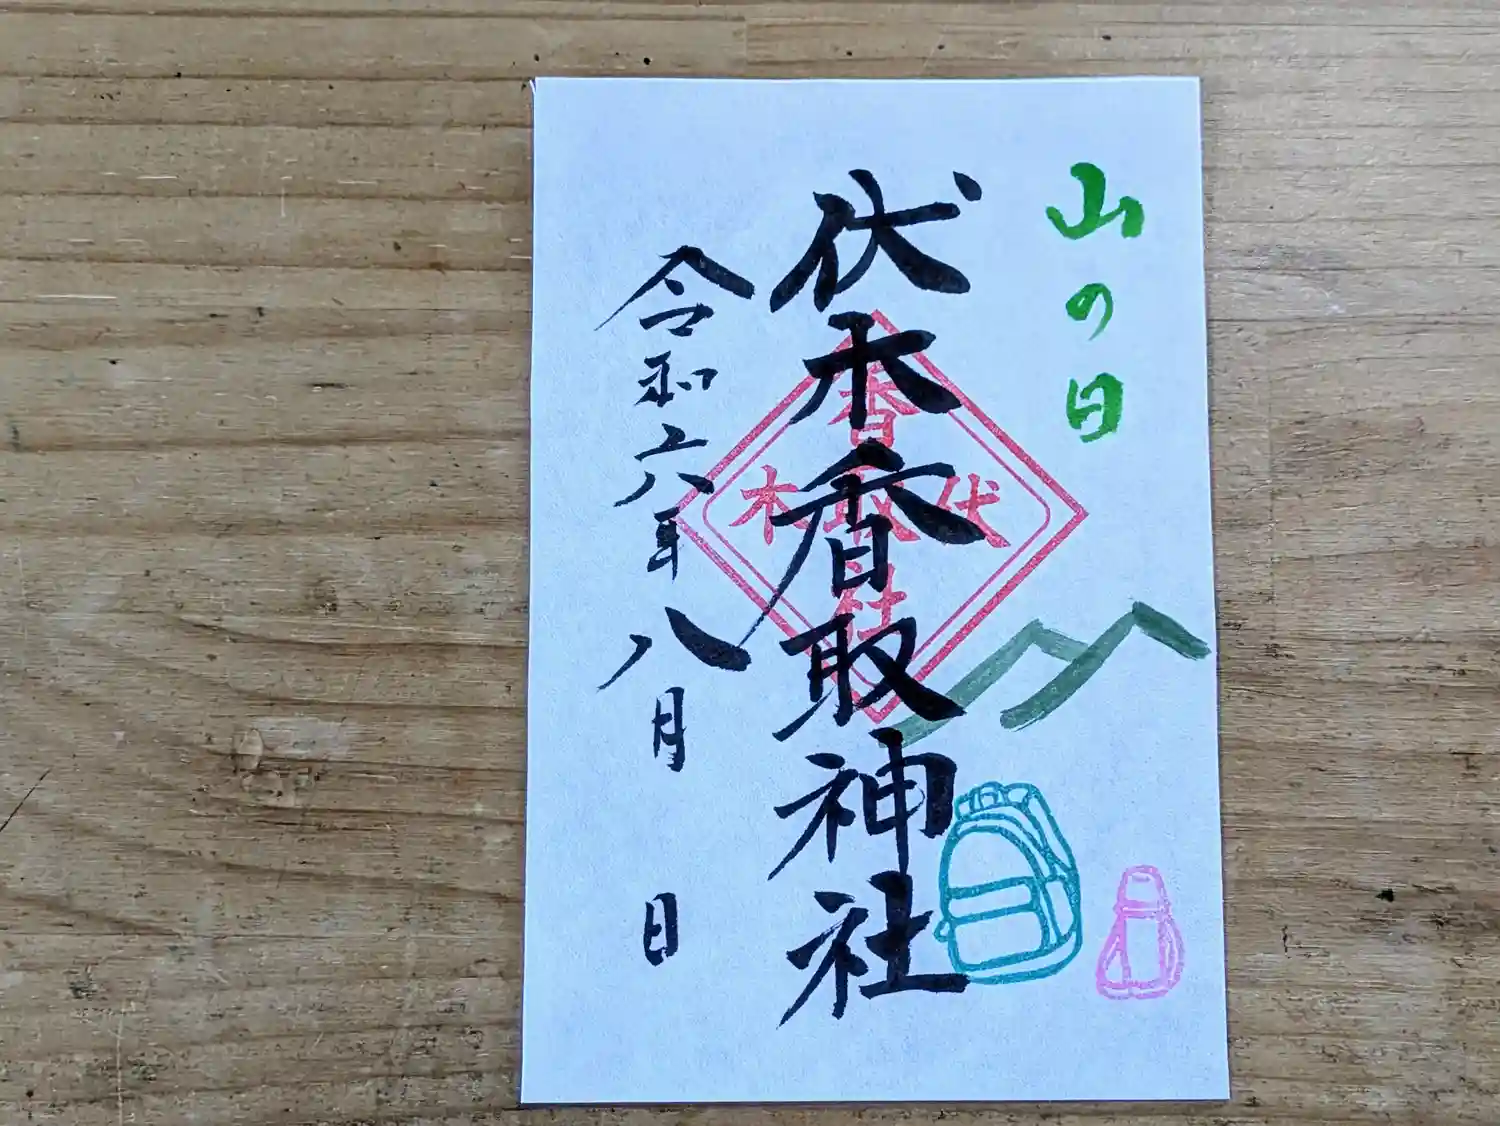 山の日
伏木香取神社
香
伏取木
社
令和六年八月 日